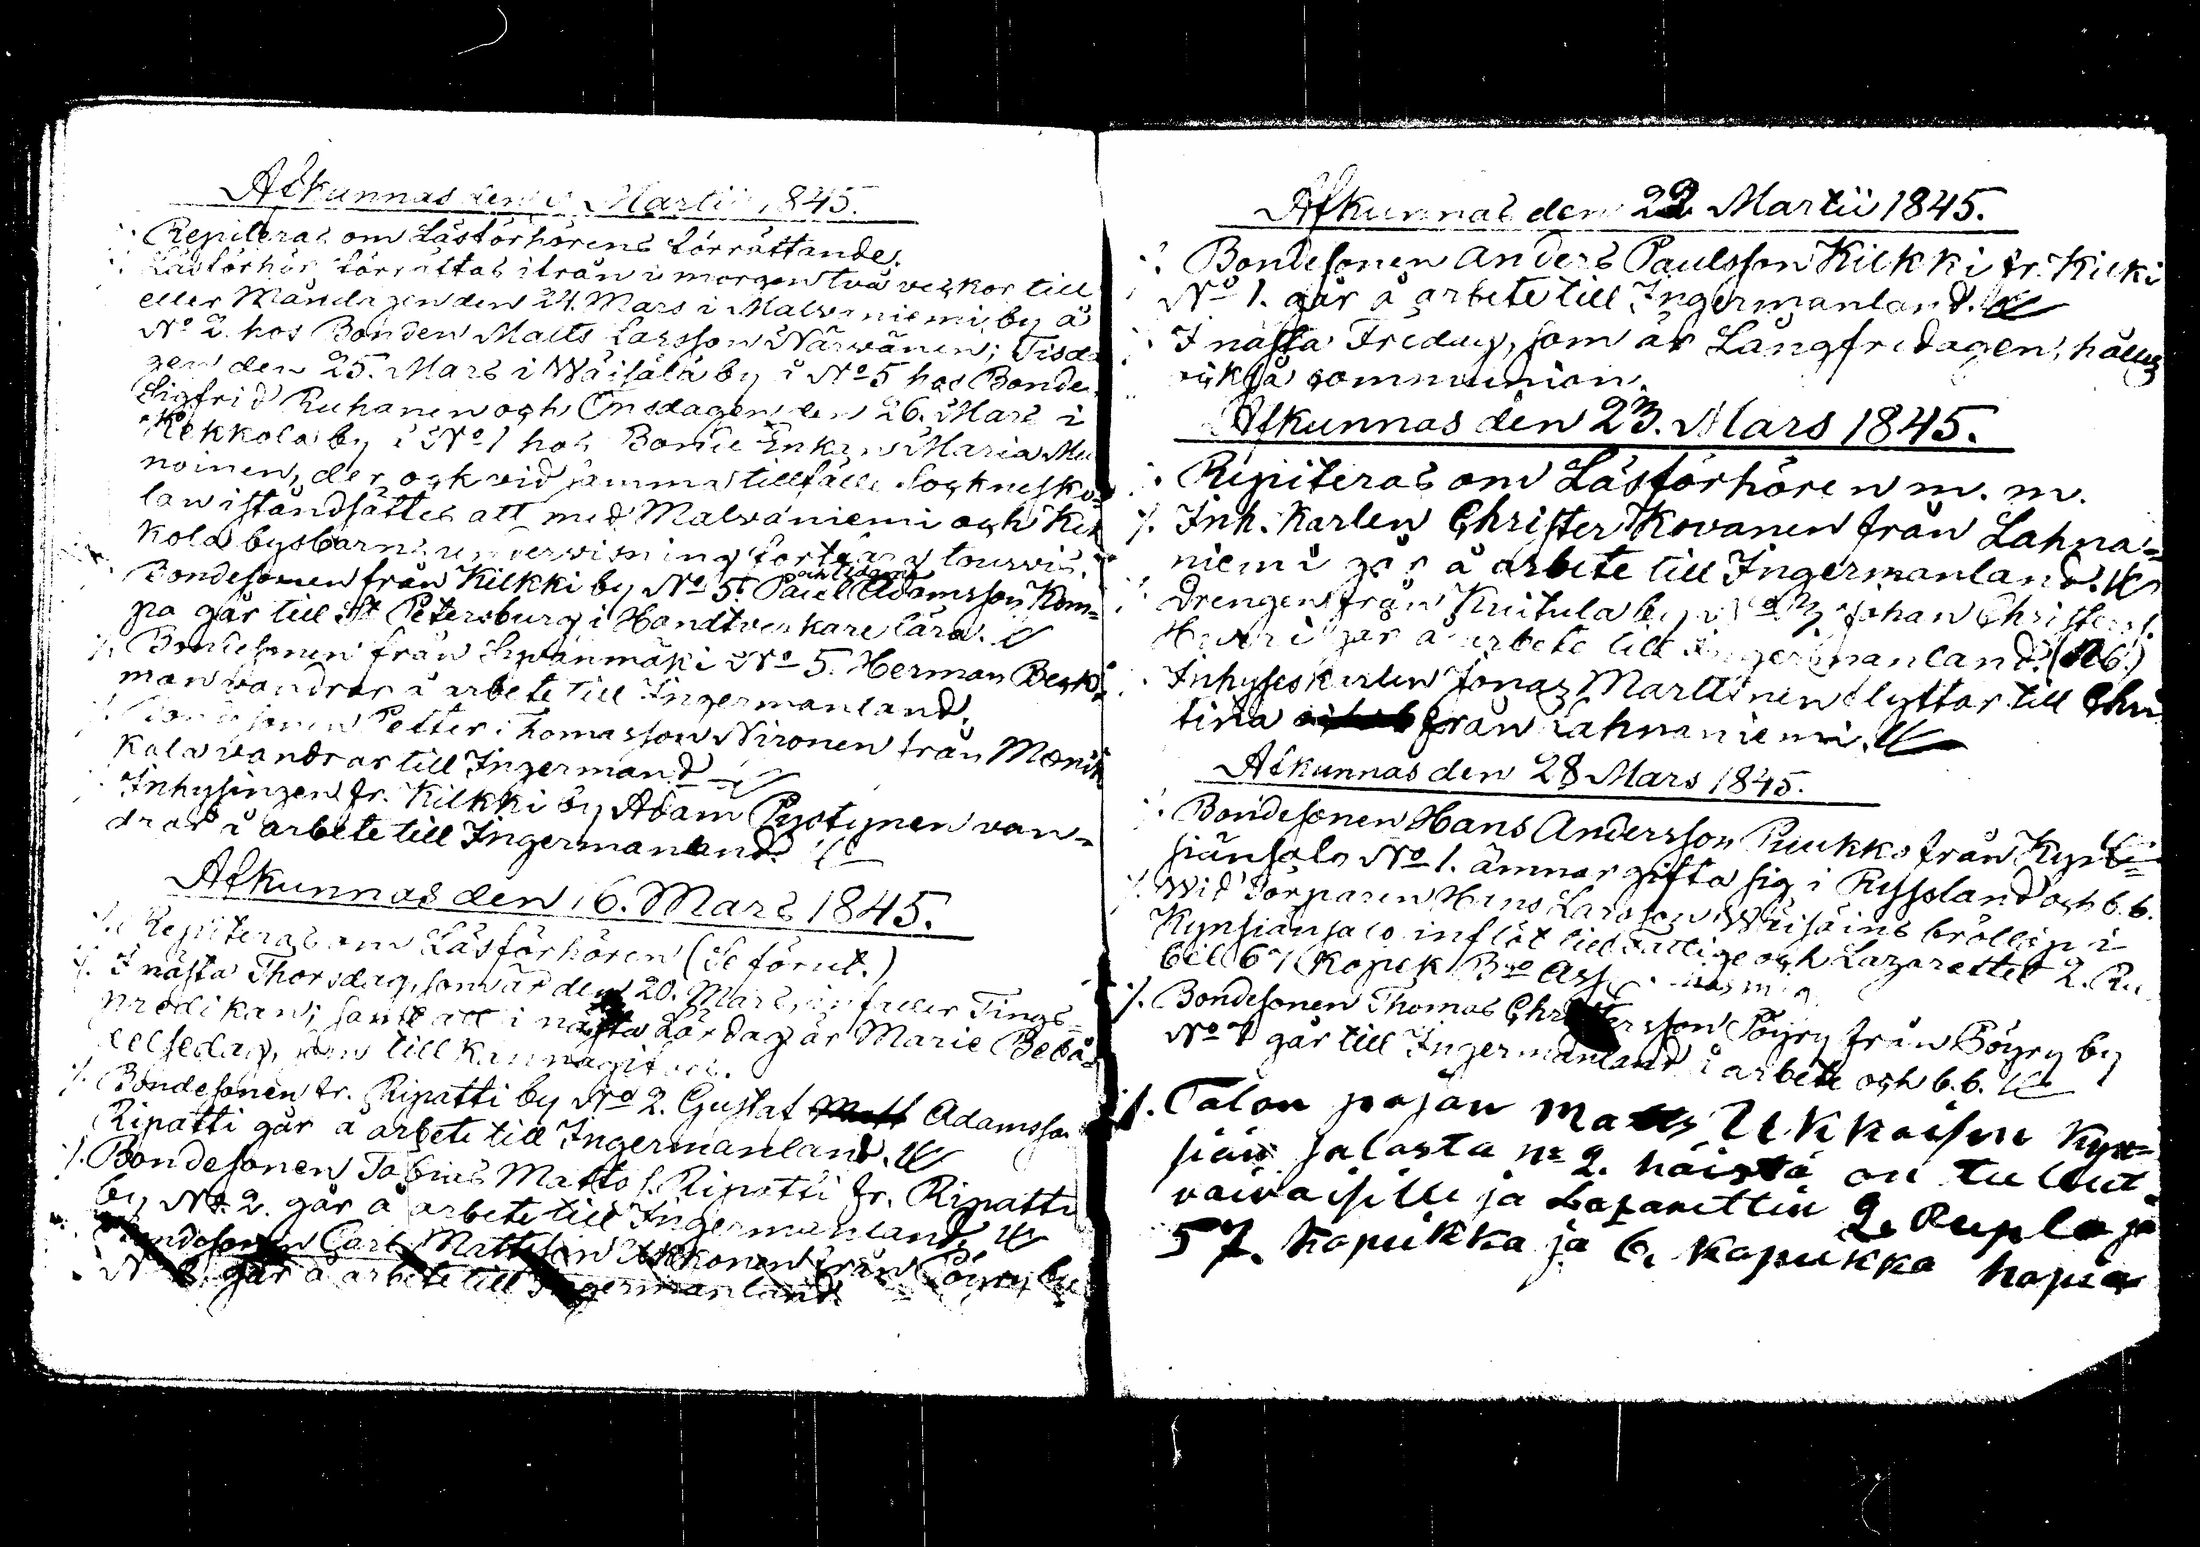 Afkunnas den 9 Martii 1845.
·/. Repiteras om Läsförhörens förrättande.
·/. Läsförhör förrättas ifrån i morgon två veckor till
eller Måndagen den 24. Mars i Malvaniemi by å
No 2. hos Bonden Matts Larsson Närvänen; Tisda
gen den 25. Mars i Wäisälä by å No 5 hos Bonde
Sigfrid Ruhanen och Onsdagen den 26. Mars i
Kekkola by å No 1 hos Bonde Enkan Maria Mu
noinen, der ock vid samma tillfälle Sockne
lan iståndsättes att med Malvaniemi och Kek
kola bys barns undervisning fortgå tourvis.
Bondesonen från Kilkki by No 5. Paul Adamsson Kom=
pa går till St Petersburg i Handtverkare lära.
·/. Bondesonen från Sipanmäki No 5. Herman Beck=
man vandrar å arbete till Ingermanland.
·/. Bondesonen Petter Thomasson Nironen från Monik
kala vandrar till Ingermand
Inhysingen fr. Kilkki by Adam Pystynen van=
drar å arbete till Ingermanland.
Afkunnas den 16. Mars 1845.
·/. Repiteras om Läsförhören (Se förut.)
·/. I nästa Thorsdag, som är den 20. Mars, infaller Tings=
predikan; samt att i nästa Lördag är Marie Bebå=
elsedag, som tillkännagifves.
·/. Bondesonen fr. Ripatti by No 2. Gustaf Matt Adamsson
Ripatti går å arbete till Ingermanland.
·/. Bondesonen Tobias Matts s. Ripatti fr. Ripatti
by No 2. går å arbete till Ingermanland.
Bondesonen Carl Mattsson Ukkonen från Pöyry by
No går å arbete till Ingermanland.
Afkunnas den 22 Martii 1845.
·/. Bondesonen Anders Paulsson Kilkki fr. Kilki
No 1. går å arbete till Ingermanland.
·/. I nästa Fredag, som är Långfredagen, hålles
också communion.
Afkunnas den 23. Mars 1845.
·/. Repiteras om Läsförhören m. m.
·/. Inh. Karlen Christer Kovanen från Lahna=
niemi går å arbete till Ingermanland.
·/. Drengen från Kuitula by No Johan Christers.
går å arbete till Ingermanland. (N6.)
·/. Inhyseskarlen Jonas Marttinen flyttar till Chri
tina från Lahnaniemi.
Afkunnas den 28 Mars 1845.
·/. Bondesonen Hans Andersson Puukko från Kyn=
siänsalo No 1. ämnar gifta sig i Ryssland och b. b.
·/. Wid Torparen Hans Larsson Wäisäins bröllop i
Kynsiänsalo inflöt till Fattige och Lazarettet 2. Ru
bel 67 Kopek Bco Ass
·/. Bondesonen Thomas Christersson Pöyry från Pöyry by
No 7 går till Ingermanland å arbete och b. b.
·/. Talon pojan Matts Ukkoisen Kyn=
siän salosta No 2. häistä on tullut
vaivaisille ja Lazarettiin 2. Ruplo ja
57. kopeikka ja 6. kopeikka hopia